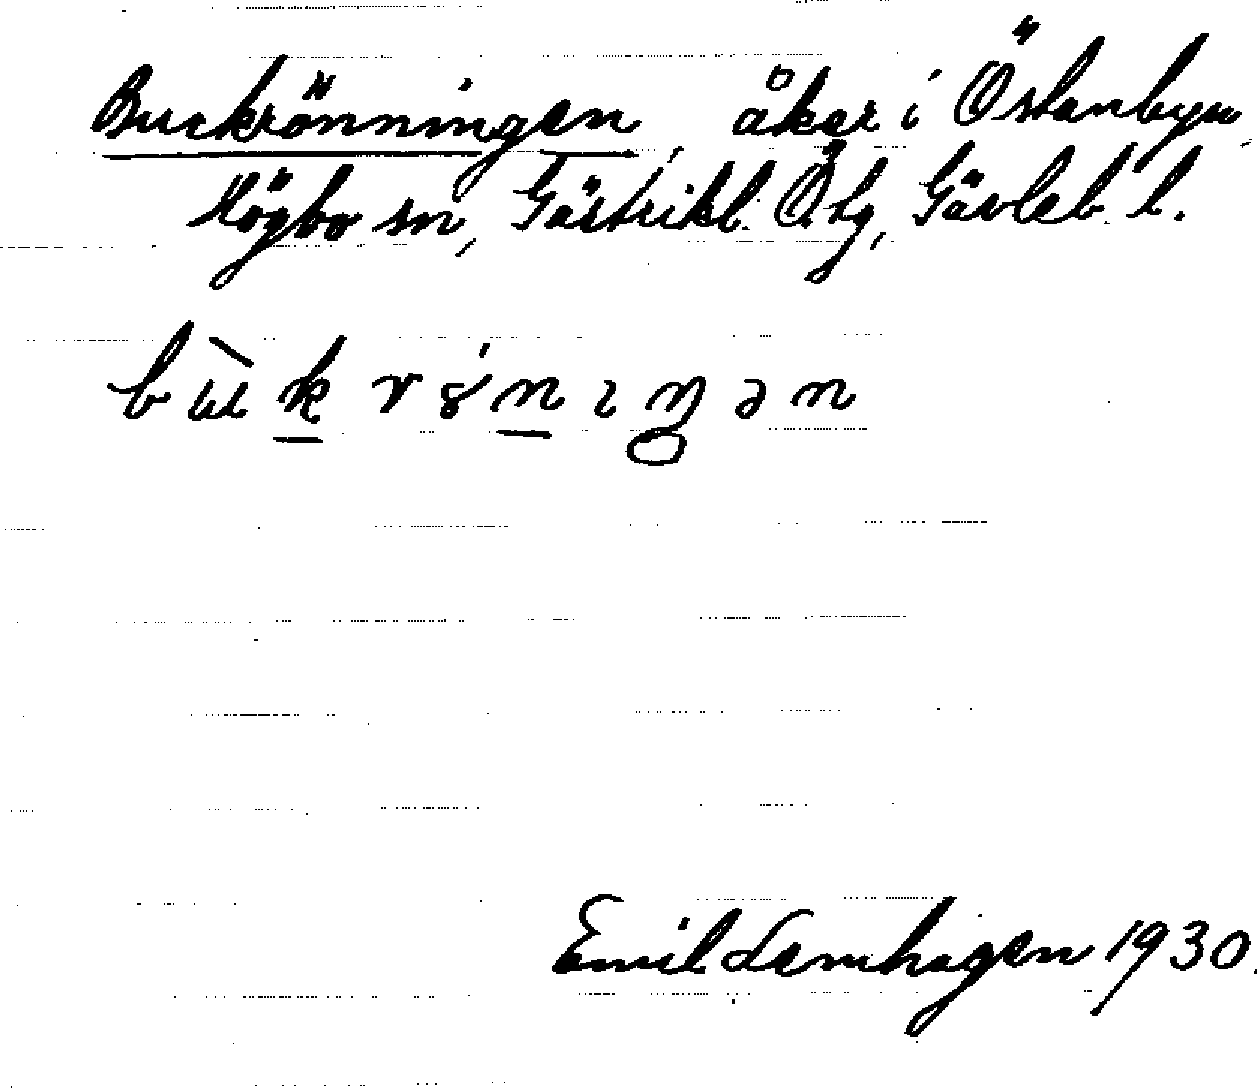 Buckrönningen, åker i Östanbyn,
Högbo sn, Gästrikl. Ö. tg, Gävleb. l.
bùkrǿnıŋən
Emil Lemhagen 1930.